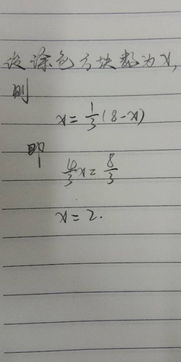 设涂色方块数为x,
则
x=1/3(8-x)
即
4/3x=8/3
x=2.